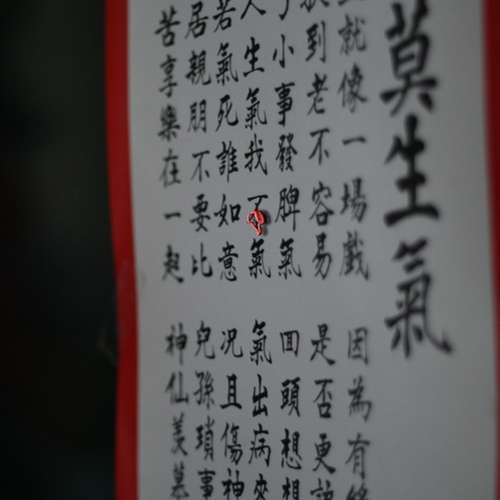 莫生氣
就像一場戲 因為有
到老不容易 是否更
小事發脾氣 回頭想想
人生氣我不氣 氣出病來
若氣死誰如意 況且傷神
居親朋不要比 兒孫瑣事
苦享樂在一起 神仙羨慕